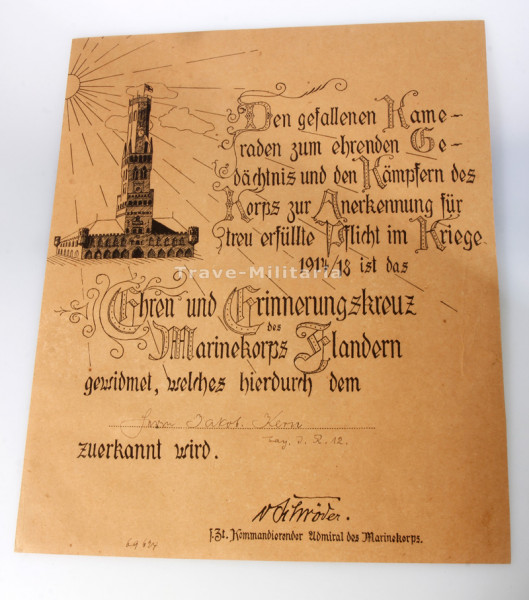 Den gefallenen Kame-
raden zum ehrenden Ge-
dächtnis und den Kämpfern des
Korps zur Anerkennung für
treu erfüllte Pflicht im Kriege
1914/18 ist das
Trave-Militaria
Ehren und Erinnerungskreuz
des
Marinekorps Flandern
gewidmet, welches hierdurch dem
Herrn Jakob Kern
zuerkannt wird.
v Schröder.
z.Zt. Kommandierender Admiral des Marinekorps.